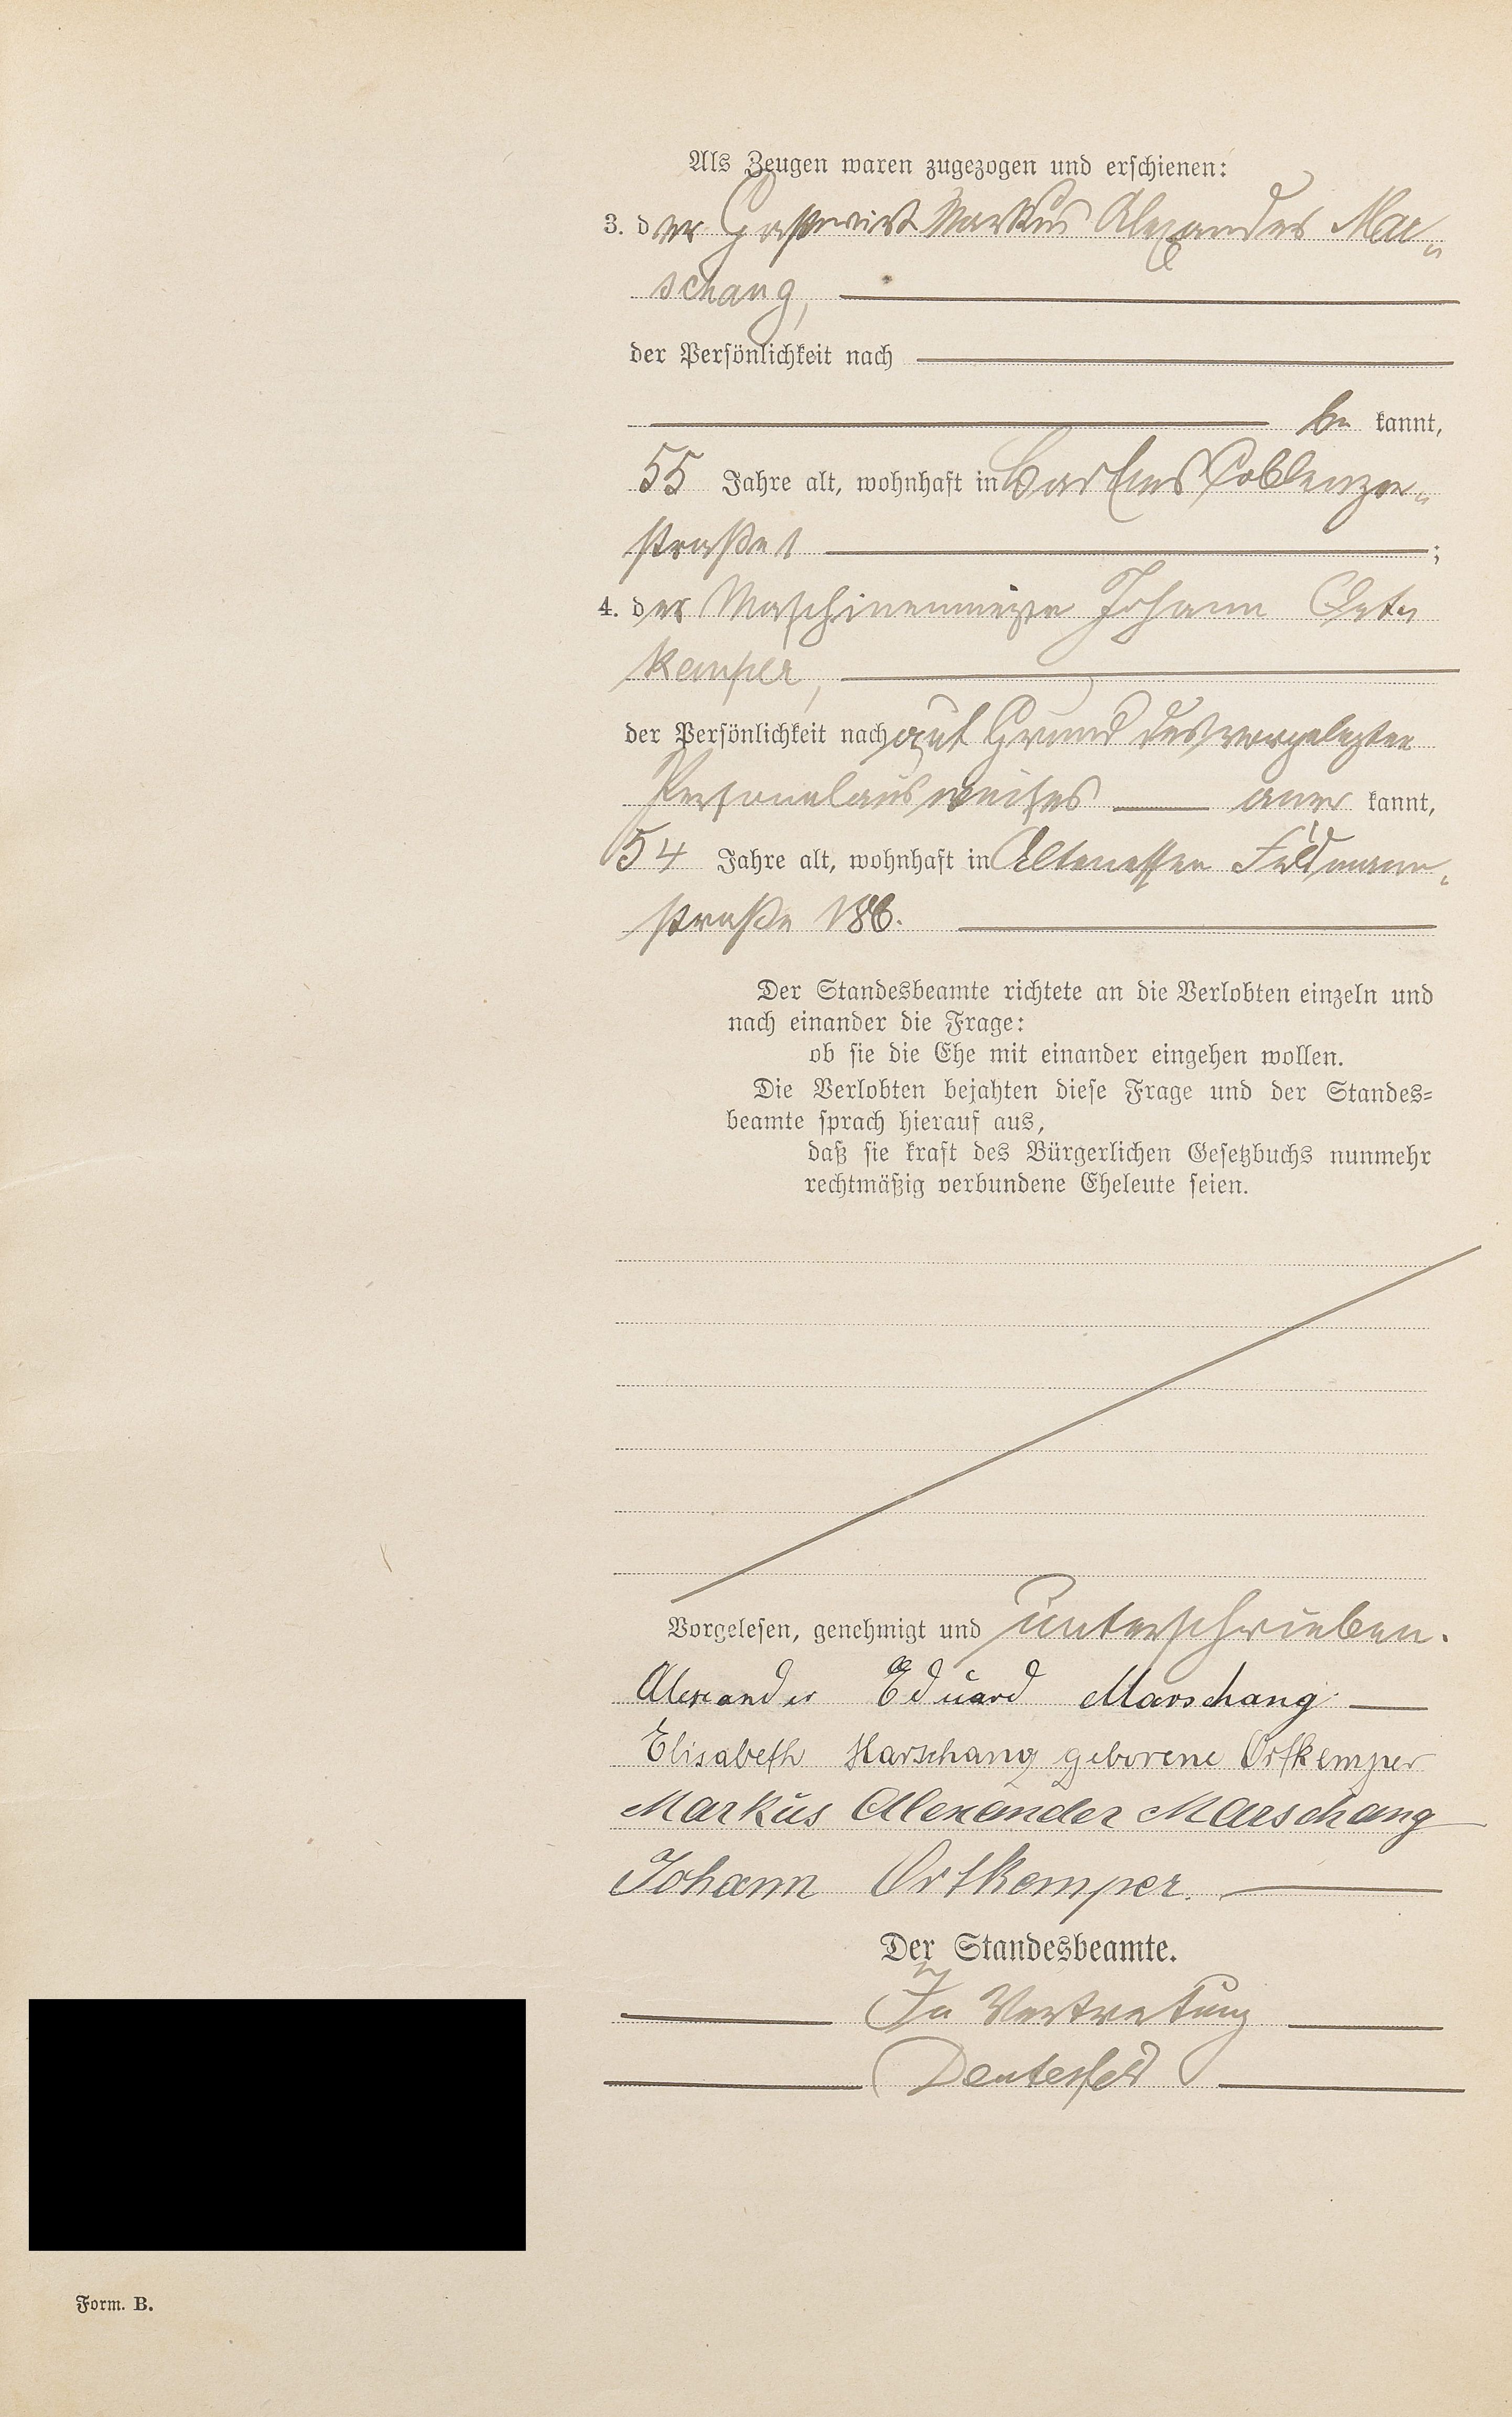 Als Zeugen waren zugezogen und erschienen:
3. der Gastwirt Markus Alexander Mar-
schang,
der Persönlichkeit nach
be kannt,
55 Jahre alt, wohnhaft in Bad Ems Coblenzer-
straße 1 ;
4. der Maschinenmeister Johann Ort-
kemper,
der Persönlichkeit nach auf Grund des vorgelegten
Personalausweises aner kannt,
54 Jahre alt, wohnhaft in Altenessen
straße 186.
Der Standesbeamte richtete an die Verlobten einzeln und
nach einander die Frage:
ob sie die Ehe mit einander eingehen wollen.
Die Verlobten bejahten diese Frage und der Standes-
beamte sprach hierauf aus,
daß sie kraft des Bürgerlichen Gesetzbuchs nunmehr
rechtmäßig verbundene Eheleute seien.
Vorgelesen, genehmigt und unterschrieben.
Alexander Eduard Marschang
Elisabeth Marschang geborene Ortkemper
Markus Alexander Marschang
Johann Ortkemper.
Der Standesbeamte.
In Vertretung
Form. B.